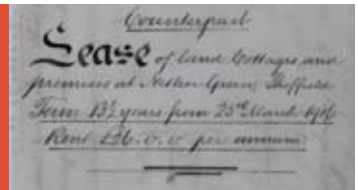 Counterpart
Lease of land Cottages and
premises at Nether Green, Sheffield
Term 13½ years from 25th March 1916
Rent £26. 0. 0 per annum